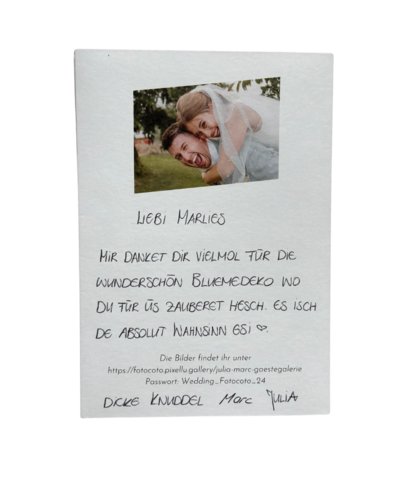 LIEBI MARLIES
MIR DANKET DIR VIELMOL FÜR DIE
WUNDERSCHÖN BLUEMEDEKO WO
DU FÜR ÜS ZAUBERET HESCH. ES ISCH
DE ABSOLUT WAHNSINN GSI ♡.
Die Bilder findet ihr unter
https://fotocoto.pixellu.gallery/julia-marc-gaestegalerie
Passwort: Wedding_Fotocoto_24
DICKE KNUDDEL MARC JULIA